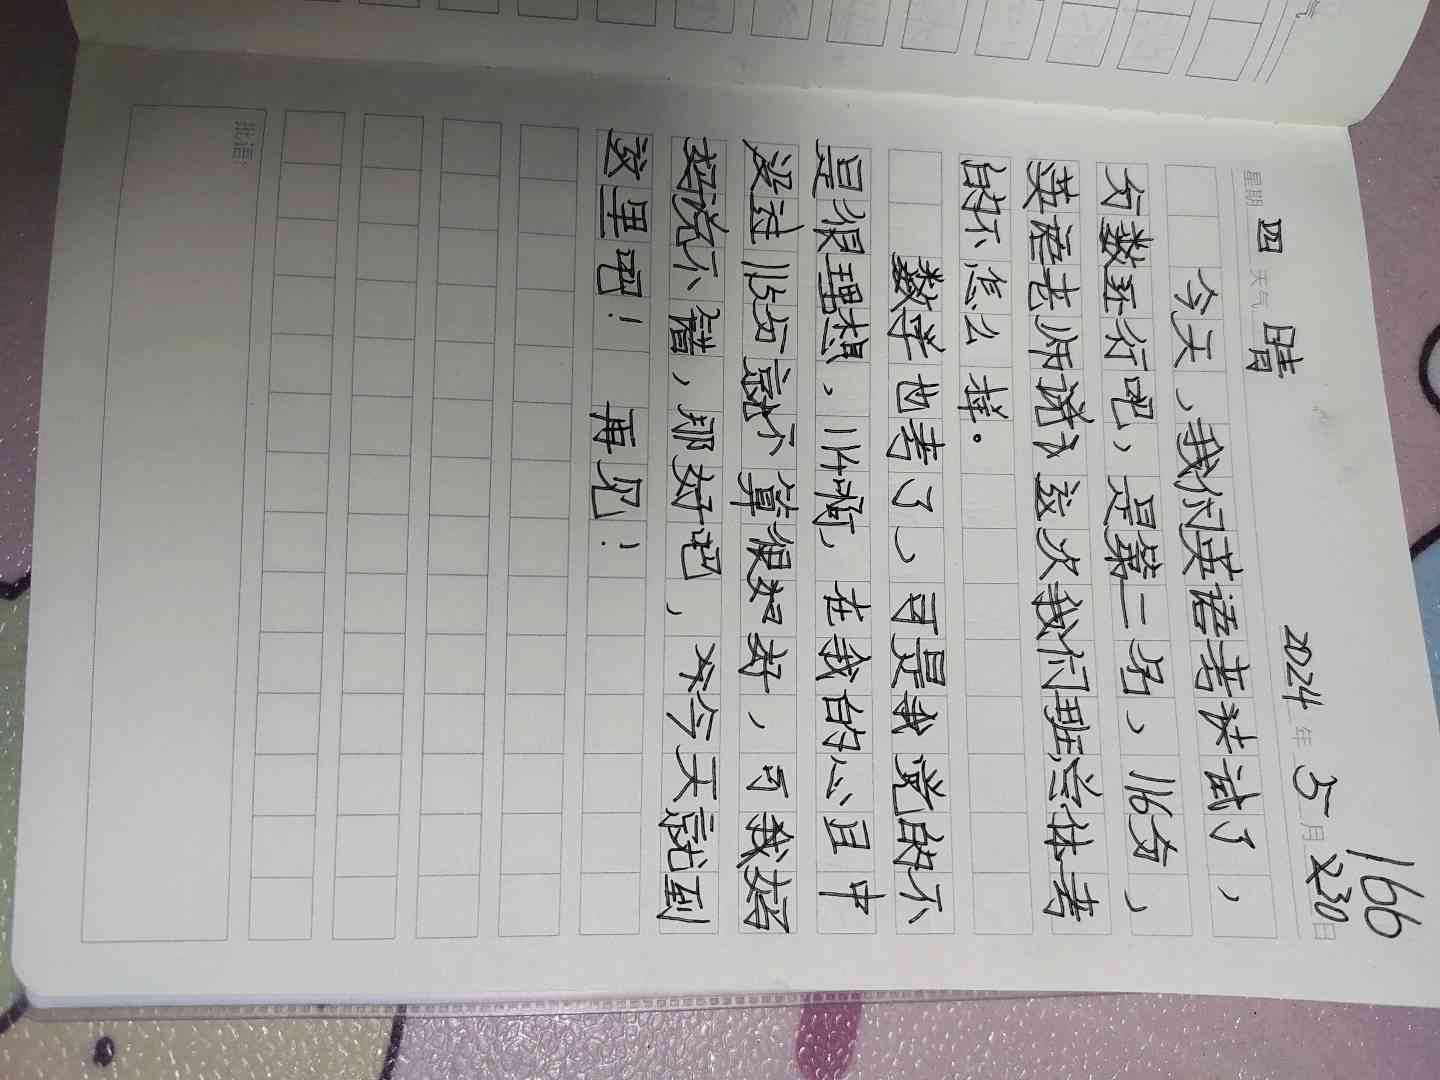 166
2024年5月30日
星期四 天气 晴
今天，我们英语考试了，
分数还行吧，是第二名，116分，
英语老师说这次我们班总体考
的不怎么样。
数学也考了，可是我觉的不
是很理想，114啊，在我的心且中
没过115分就不算很好，可我妈
妈说不错，那好吧，今天就到
这里吧！再见！
批语: